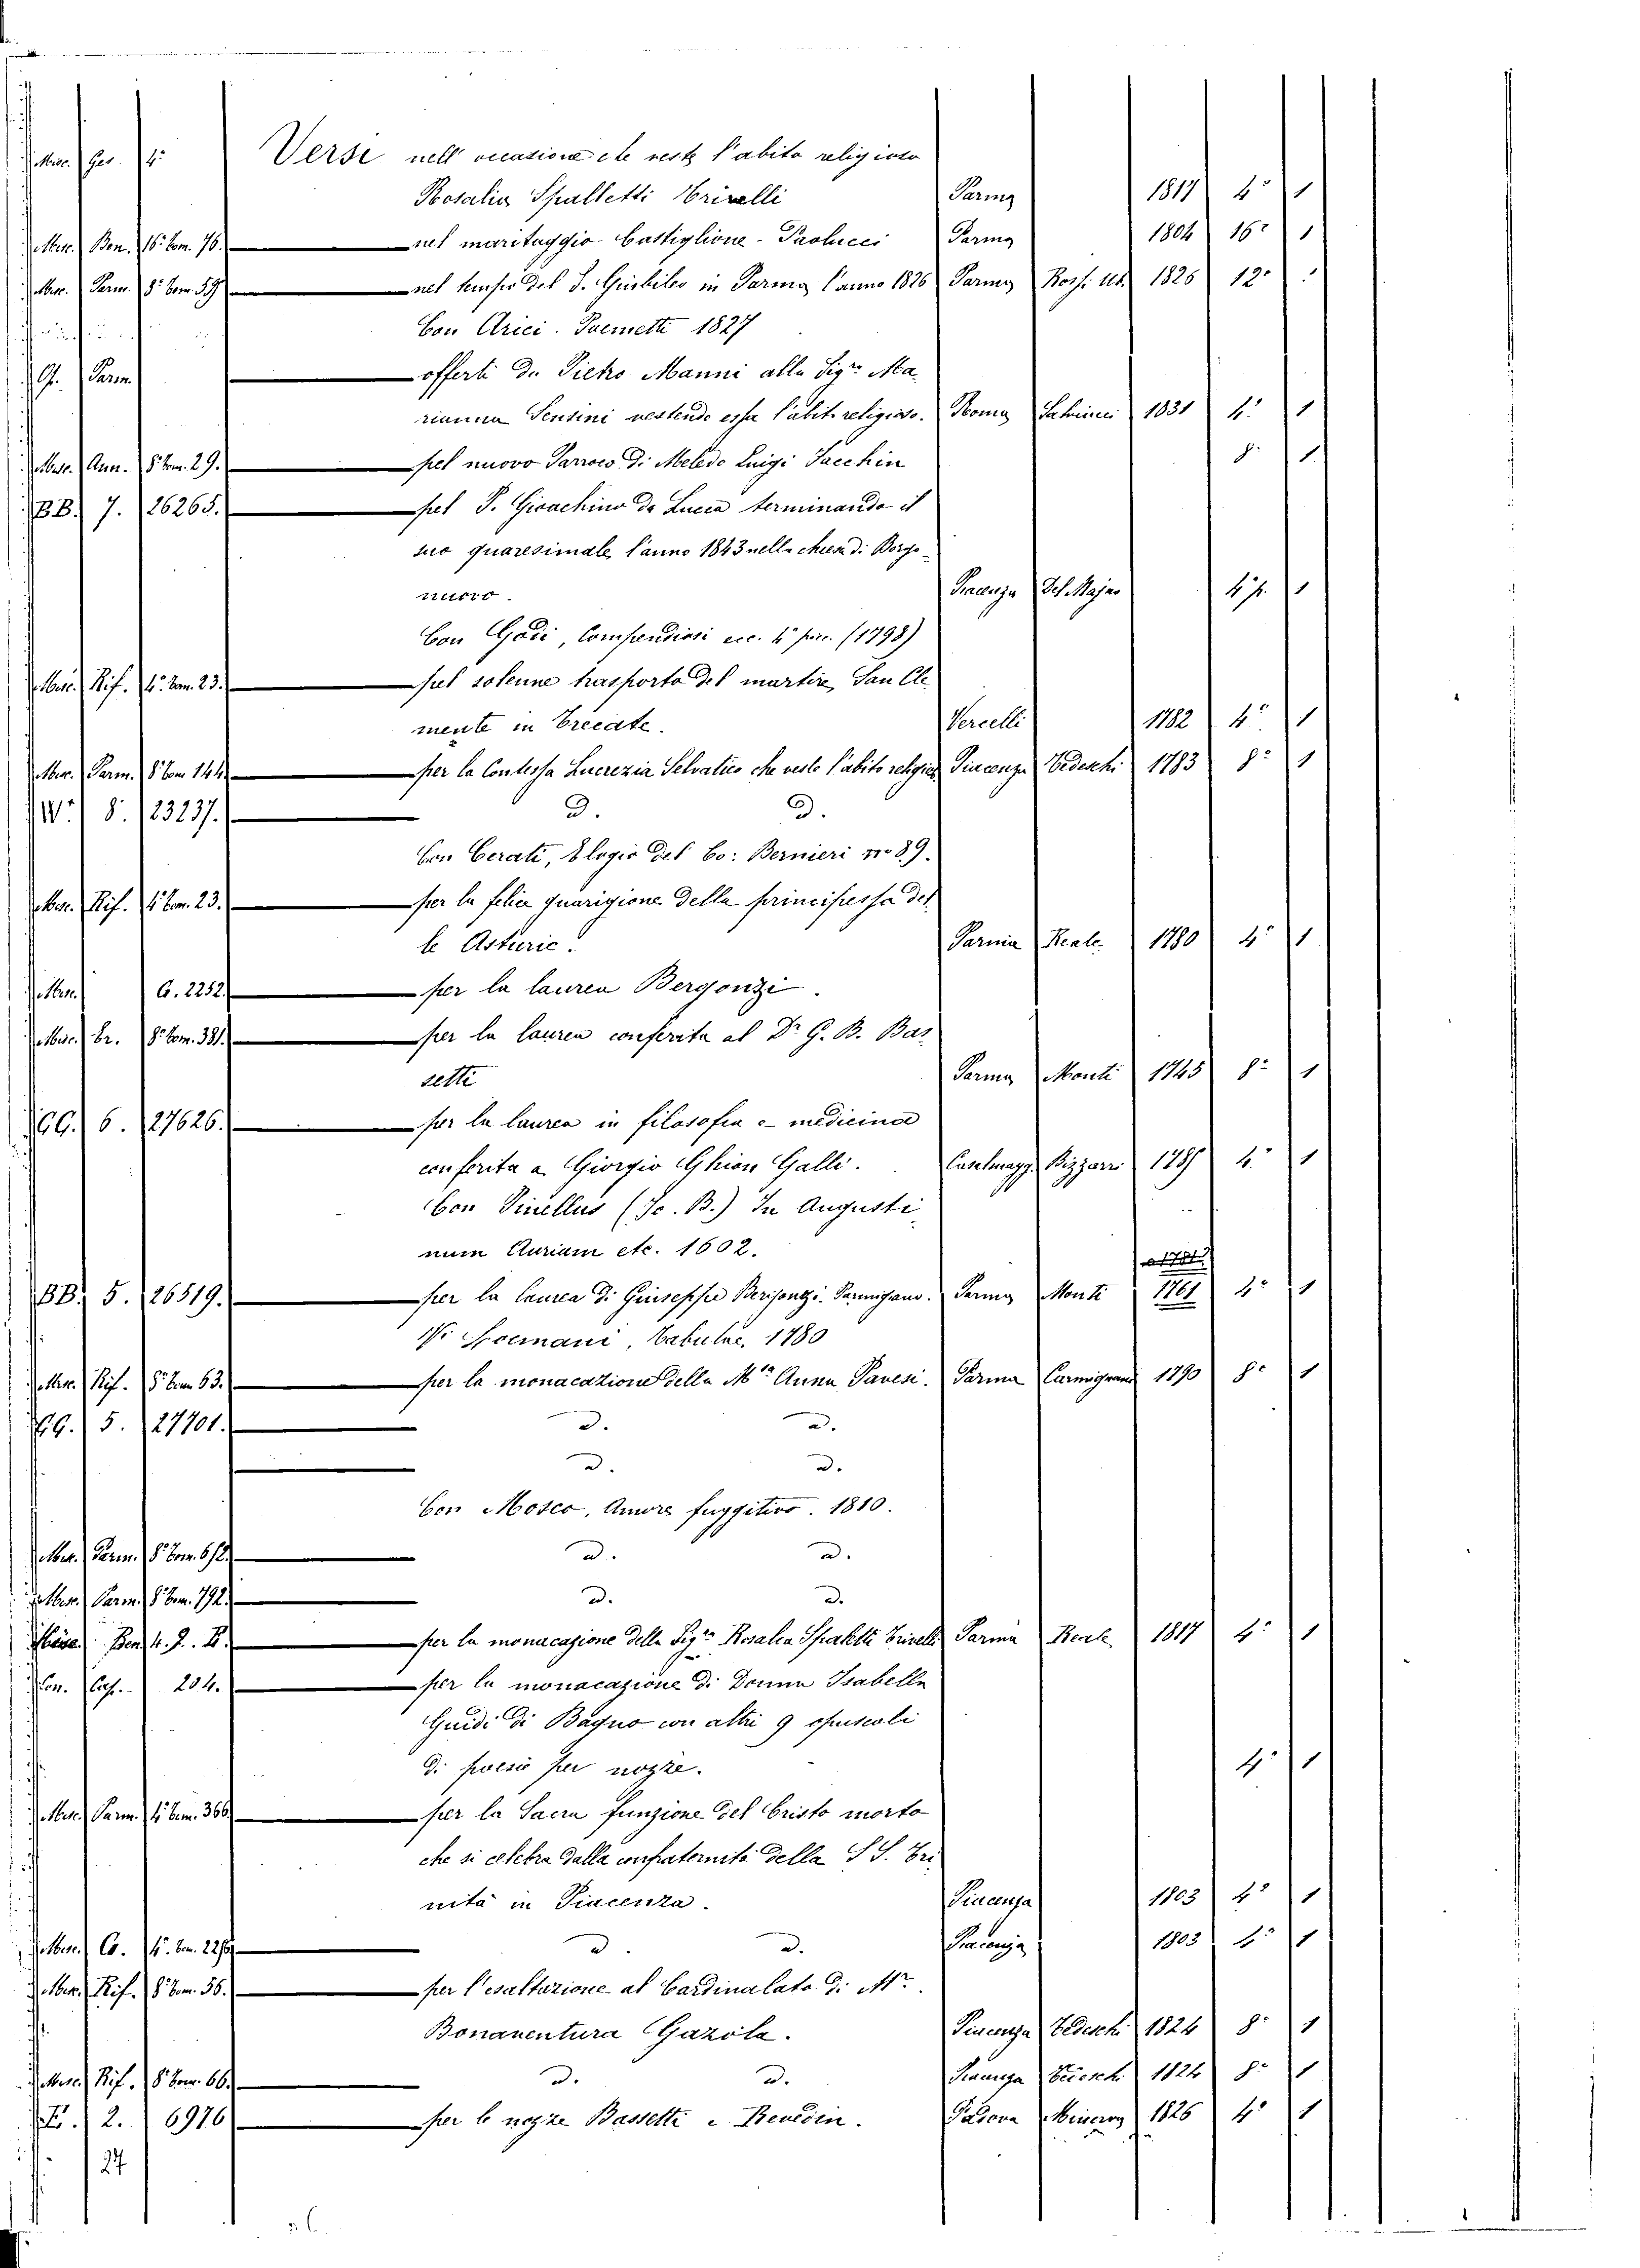 Misc. Ges. 4° Versi nell' occasione che veste l'abito religioso
Rosalia Spalletti Trivelli Parma 1817 4° 1
Misc. Ben. 16° tom. 76. nel maritaggio Castiglione - Paolucci Parma 1804 16° 1
Misc. Parm. 8° tom. 59 nel tempo del S. Giubileo in Parma l'anno 1826 Parma Ross. Ub. 1826 12°
Con Arici. Poemetti 1827
G. Parm. offerti da Pietro Manni alla Sigra Ma
rianna Sensini vestendo essa l'abito religioso. Roma Salviucci 1831 4° 1
Misc. Ann. 8° tom. 29. pel nuovo Parroco di Meledo Luigi Sacchin 8. 1
BB. 7. 26265. pel P. Gioachino da Lucca terminando il
suo quaresimale l'anno 1843 nella chiesa di Borgo
nuovo. Piacenza Del Majno 4°. 1
Con Godi, Compendiosi ecc. 4° picc. (1798)
Misc. Rif. 4° tom. 23. pel solenne trasporto del martire San Cle
mente in Trecate. Vercelli 1782 4° 1
Misc. Parm. 8° tom 144 per la Contessa Lucrezia Selvatico che veste l'abito religios Piacenza Tedeschi 1783 8° 1
W 8. 23237. D. D.
Con Cerati, Elogio del Co: Bernieri no 89.
Misc. Rif. 4° tom. 23. per la felice guarigione della principessa del
le Asturie. Parma Reale 1780 4° 1
Misc. G. 2252. per la laurea Bergonzi.
Misc. Er. 8° tom. 381. per la laurea conferita al Dr G. B. Bas
setti Parma Monti 1745 8° 1
GG. 6. 27626. per la laurea in filosofia e medicina
conferita a Giorgio Ghion Galli. Casalmagg. Bizzarri 1787 4. 1
Con Pinellus (Jo. B.) In Augusti
num Auriam etc. 1602.
BB. 5. 26519. per la laurea di Giuseppe Bergonzi. Parmigiano. Parma Monti 1761 4° 1
V. Scemani, Tabulae, 1780
Misc. Rif. 8° tom 63. per la monacazione della Ma Anna Pavesi. Parma Carmignani 1790 8° 1
GG. 5. 27701. D. D.
D. D.
Con Mosco, Amore fuggitivo. 1810.
Misc. Parm. 8° tom. 612. D. D.
Misc. Parm. 8° tom. 792. D. D.
per la monacazione della Sigra Rosalia Spalletti Trivelli Parma Reale 1817 4° 1
204. per la monacazione di Donna Isabella
Guidi di Bagno con altri 9 opuscoli
di poesie per nozze. 4° 1
Misc. Parm. 4° tom. 366 per la Sacra funzione del Cristo morto
che si celebra dalla confraternita della SS. Tri
nità in Piacenza. Piacenza 1803 4° 1
D. D. Piacenza 1803 4° 1
Misc. Rif. 8° tom. 56. per l'esaltazione al Cardinalato di Mr.
Bonaventura Gazola. Piacenza Tedeschi 1824 8° 1
Misc. Rif. 8° tom. 66. D. D. Piacenza Tedeschi 1824 8° 1
2. 6976 per le nozze Bassetti e Benedin. Padova Minerva 1826 4° 1
27